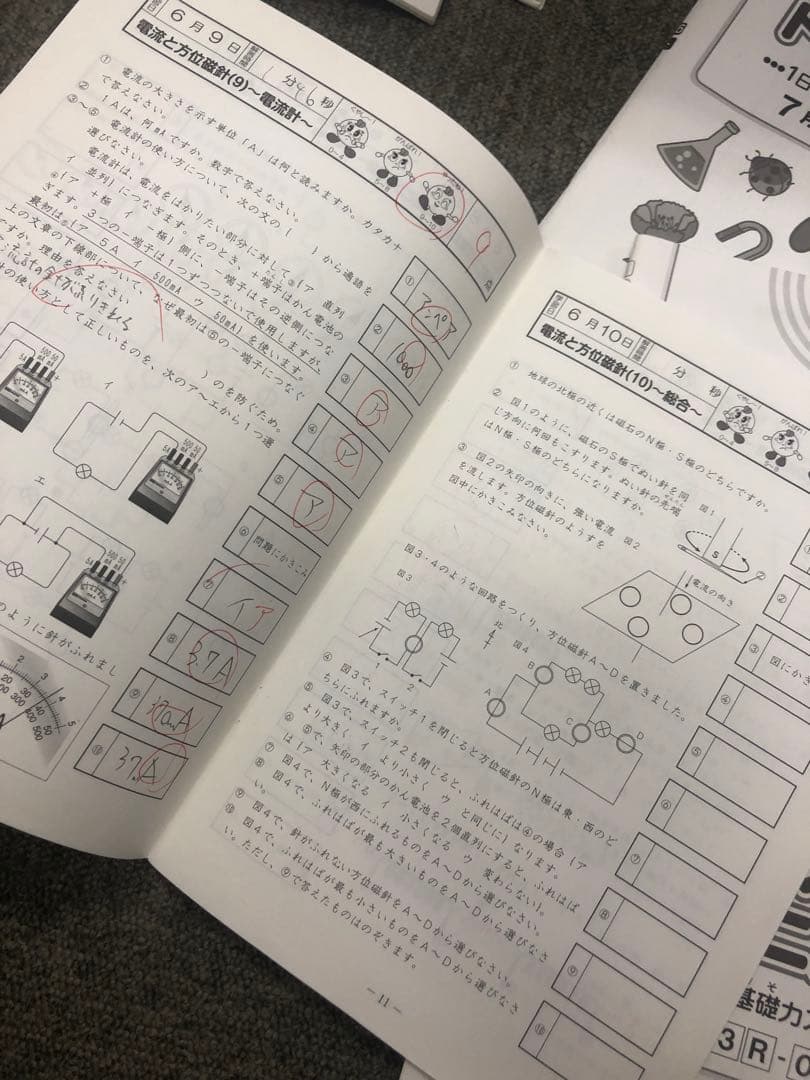 6月9日
1分46秒
電流と方位磁針(9)～電流計～
くやしー!
がんばれ!
0～4
5～8
9～10
9
① 電流の大きさを示す単位「A」は何と読みますか。カタカナで答えなさい。
② 1Aは、何mAですか。数字で答えなさい。
③～⑤ 電流計の使い方について、次の文の( )から適語を選びなさい。
電流計は、電流をはかりたい部分に対して③(ア 直列
イ 並列)につなぎます。そのとき、+端子はかん電池の
④(ア +極 イ -極)側に、-端子はその逆側につな
ぎます。3つの-端子は1つずつつないで使用しますが、
最初は⑤(ア 5A イ 500mA ウ 50mA)を使います。
上の文章の下線部について、なぜ最初は⑤の-端子につなぐ
すか。理由を答えなさい
)のを防ぐため。
の使い方として正しいものを、次のア～エから1つ選
イ
エ
のように針がふれまし
① アンペア
② 1000
③ ア
④ ア
⑤ ア
⑥ 問題にかきこみ
⑦ イ ア
⑧ 3.7A
⑨ 370mA
⑩ 37mA
6月10日
分 秒
電流と方位磁針(10)～総合～
くやしー!
がんばれ!
0～4
① 地球の北極の近くは磁石のN極・S極のどちらですか。
② 図1のように、磁石のS極でぬい針を同
じ方向に何回もこすります。ぬい針の先端
はN極・S極のどちらになりますか。
図1
S
③ 図2の矢印の向きに、強い電流
を流します。方位磁針のようすを
図中にかきこみなさい。
図2
電流の向き
図3・4のような回路をつくり、方位磁針A～Dを置きました。
図3
1
2
北
図4
A
B
C
D
④ 図3で、スイッチ1を閉じると方位磁針のN極は東・西のど
ちらにふれますか。
⑤ 図3で、スイッチ2も閉じると、ふれはばは④の場合(ア
より大きく イ より小さく ウ と同じに)なります。
⑥ ⑤で、矢印の部分のかん電池を2個直列にすると、ふれはば
は(ア 大きくなる イ 小さくなる ウ 変わらない)。
⑦ 図4で、N極が西にふれるものをA～Dから選びなさい。
⑧ 図4で、ふれはばが最も大きいものをA～Dから選びなさ
い。
⑨ 図4で、針がふれない方位磁針をA～Dから選びなさい。
⑩ 図4で、ふれはばが最も小さいものをA～Dから選びなさ
い。ただし、⑨で答えたものはのぞきます。
②
③ 図にかき
④
⑤
⑥
⑦
⑧
⑨
⑩
- 11 -
1日
7月
基礎力
3R-0